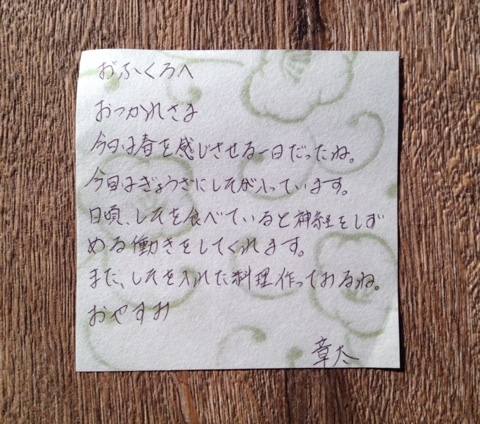 おふくろへ
おつかれさま
今日は春を感じさせる一日だったね。
今日はぎょうざにしそが入っています。
日頃、しそを食べていると神経をしず
める働きをしてくれます。
また、しそを入れた料理作っておるね。
おやすみ
章太